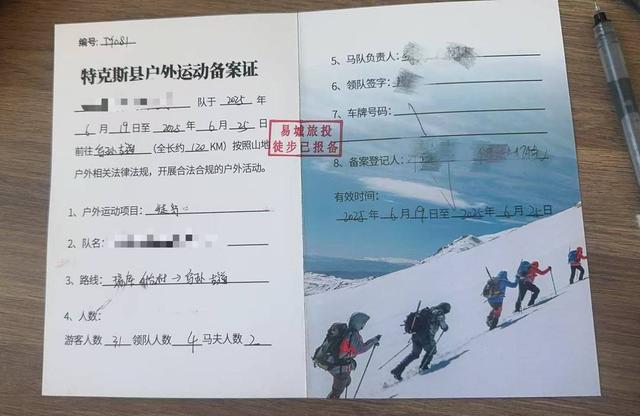 编号: TY081
特克斯县户外运动备案证
队于 2025 年
6 月 19 日至 2025 年 6 月 25 日
前往 乌孙古道 (全长约 120 KM) 按照山地
户外相关法律法规，开展合法合规的户外活动。
1、户外运动项目: 徒步
2、队名:
3、路线: 琼库什台村 → 乌孙古道
4、人数:
游客人数 31 领队人数 4 马夫人数 2
5、马队负责人:
6、领队签字:
7、车牌号码:
易城旅投
徒步已报备
8、备案登记人:
有效时间:
2025 年 6 月 19 日至 2025 年 6 月 25 日